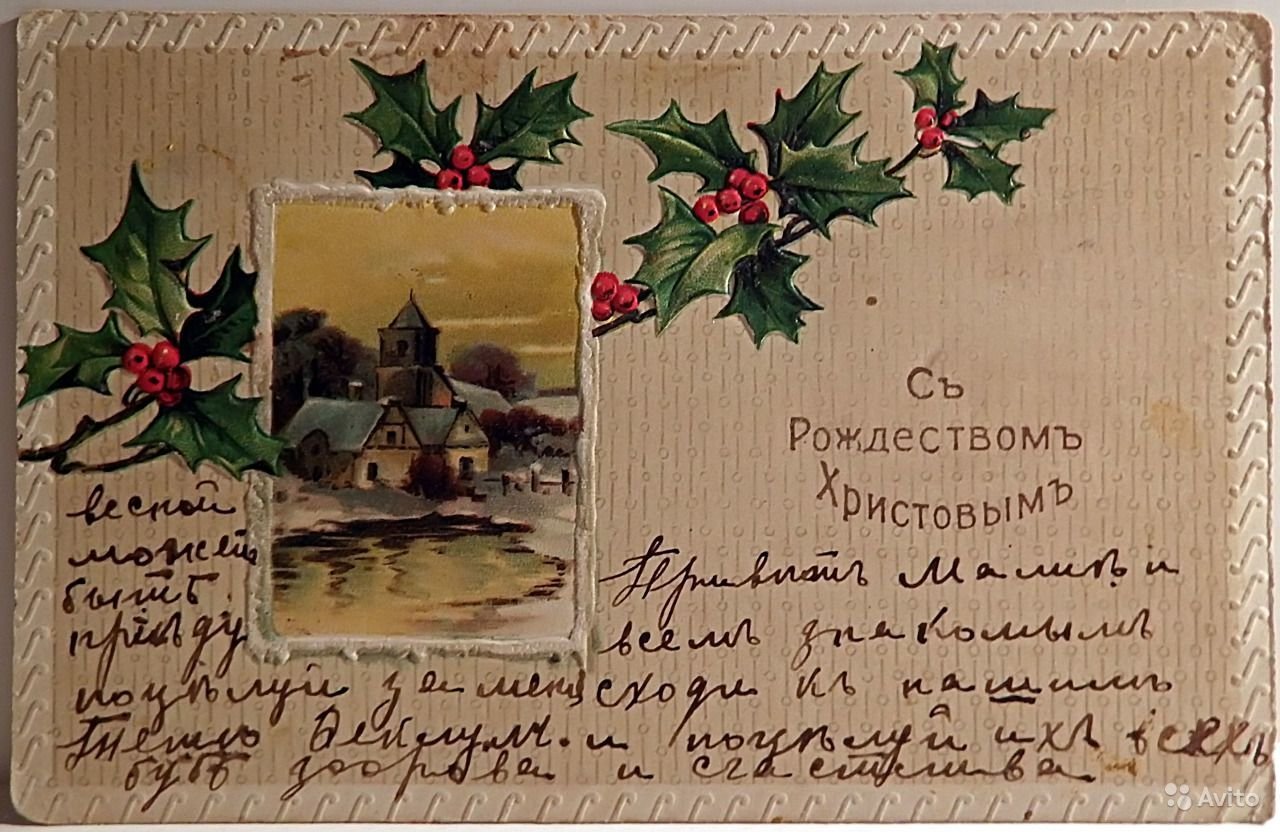 Съ
Рождествомъ
Христовымъ
весной
можетъ
быть
пріѣду
Привѣтъ Малинѣ и
всемъ знакомымъ
поцѣлуй за меня сходи къ нашимъ
и поцѣлуй ихъ всѣхъ
будь здорова и счастлива
Avito